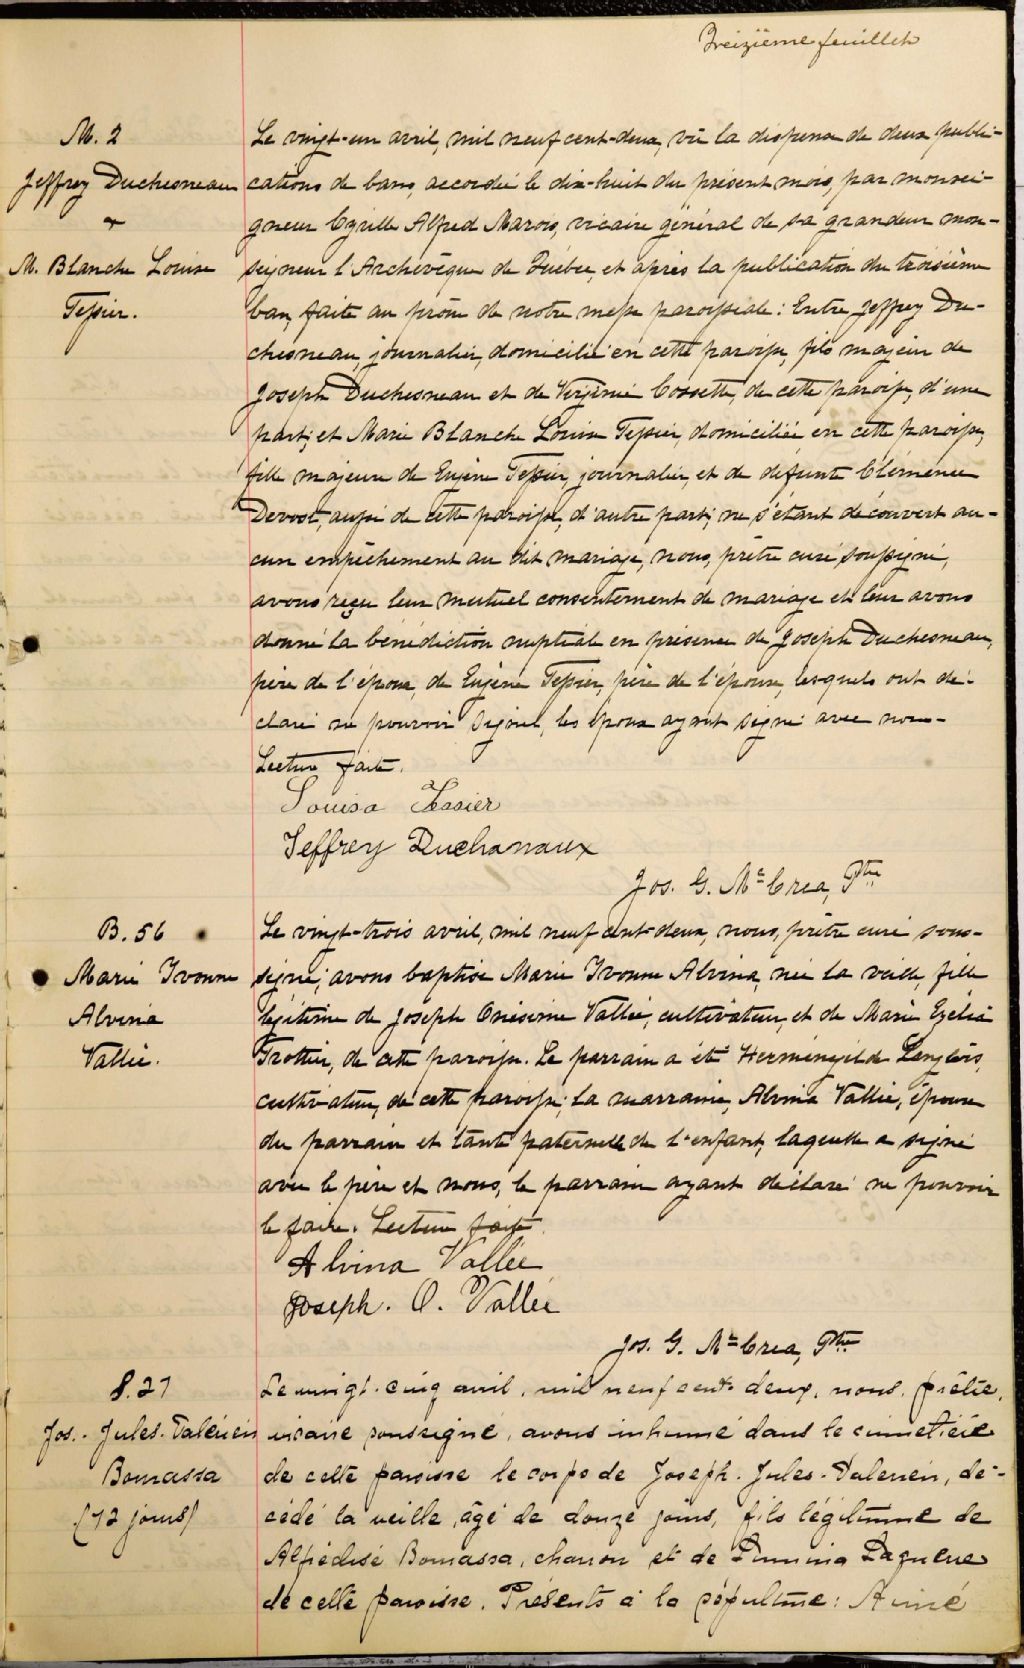 Treizième feuillet
M. 2
Jeffrey Duchesneau
&
M. Blanche Louise
Tessier.
Le vingt-un avril, mil neuf cent-deux, vu la dispense de deux publi-
cations de bans, accordée le dix-huit du présent mois, par monsei-
gneur Cyrille Alfred Marois, vicaire général de sa grandeur mon-
seigneur l'Archevêque de Québec, et après la publication du troisième
ban, faite au prône de notre messe paroissiale: Entre Jeffrey Du-
chesneau, journalier, domicilié en cette paroisse, fils majeur de
Joseph Duchesneau et de Virginie Cossette, de cette paroisse, d'une
part; et Marie Blanche Louise Tessier, domiciliée en cette paroisse,
fille majeure de Eugène Tessier, journalier et de défunte Clémence
Devost, aussi de cette paroisse, d'autre part; ne s'étant découvert au-
cun empêchement au dit mariage, nous, prêtre curé soussigné,
avons reçu leur mutuel consentement de mariage et leur avons
donné la bénédiction nuptiale en présence de Joseph Duchesneau,
père de l'époux, de Eugène Tessier, père de l'épouse, lesquels ont dé-
claré ne pouvoir signer, les époux ayant signé avec nous.
Lecture faite.
Louisa Tessier
Jeffrey Duchanaux
Jos. G. McCrea, Ptre
B. 56
Marie Yvonne
Alvina
Vallée.
Le vingt-trois avril, mil neuf cent-deux, nous, prêtre curé sous-
signé, avons baptisé Marie Yvonne Alvina, née la veille, fille
légitime de Joseph Onésime Vallée, cultivateur, et de Marie Ezélia
Trottier, de cette paroisse. Le parrain a été Herménégilde Langlois,
cultivateur, de cette paroisse; la marraine, Alvina Vallée, épouse
du parrain et tante paternelle de l'enfant, laquelle a signé
avec le père et nous, le parrain ayant déclaré ne pouvoir
le faire. Lecture faite.
Alvina Vallée
Joseph. O. Vallée
Jos. G. McCrea, Ptre
S. 27
Jos.- Jules- Valérien
Bourassa
(12 jours)
Le vingt-cinq avril, mil neuf cent-deux, nous, prêtre,
vicaire soussigné, avons inhumé dans le cimetière
de cette paroisse le corps de Joseph-Jules-Valérien, dé-
cédé la veille, âgé de douze jours, fils légitime de
Bourassa, charron et de
de cette paroisse. Présents à la sépulture: Aimé